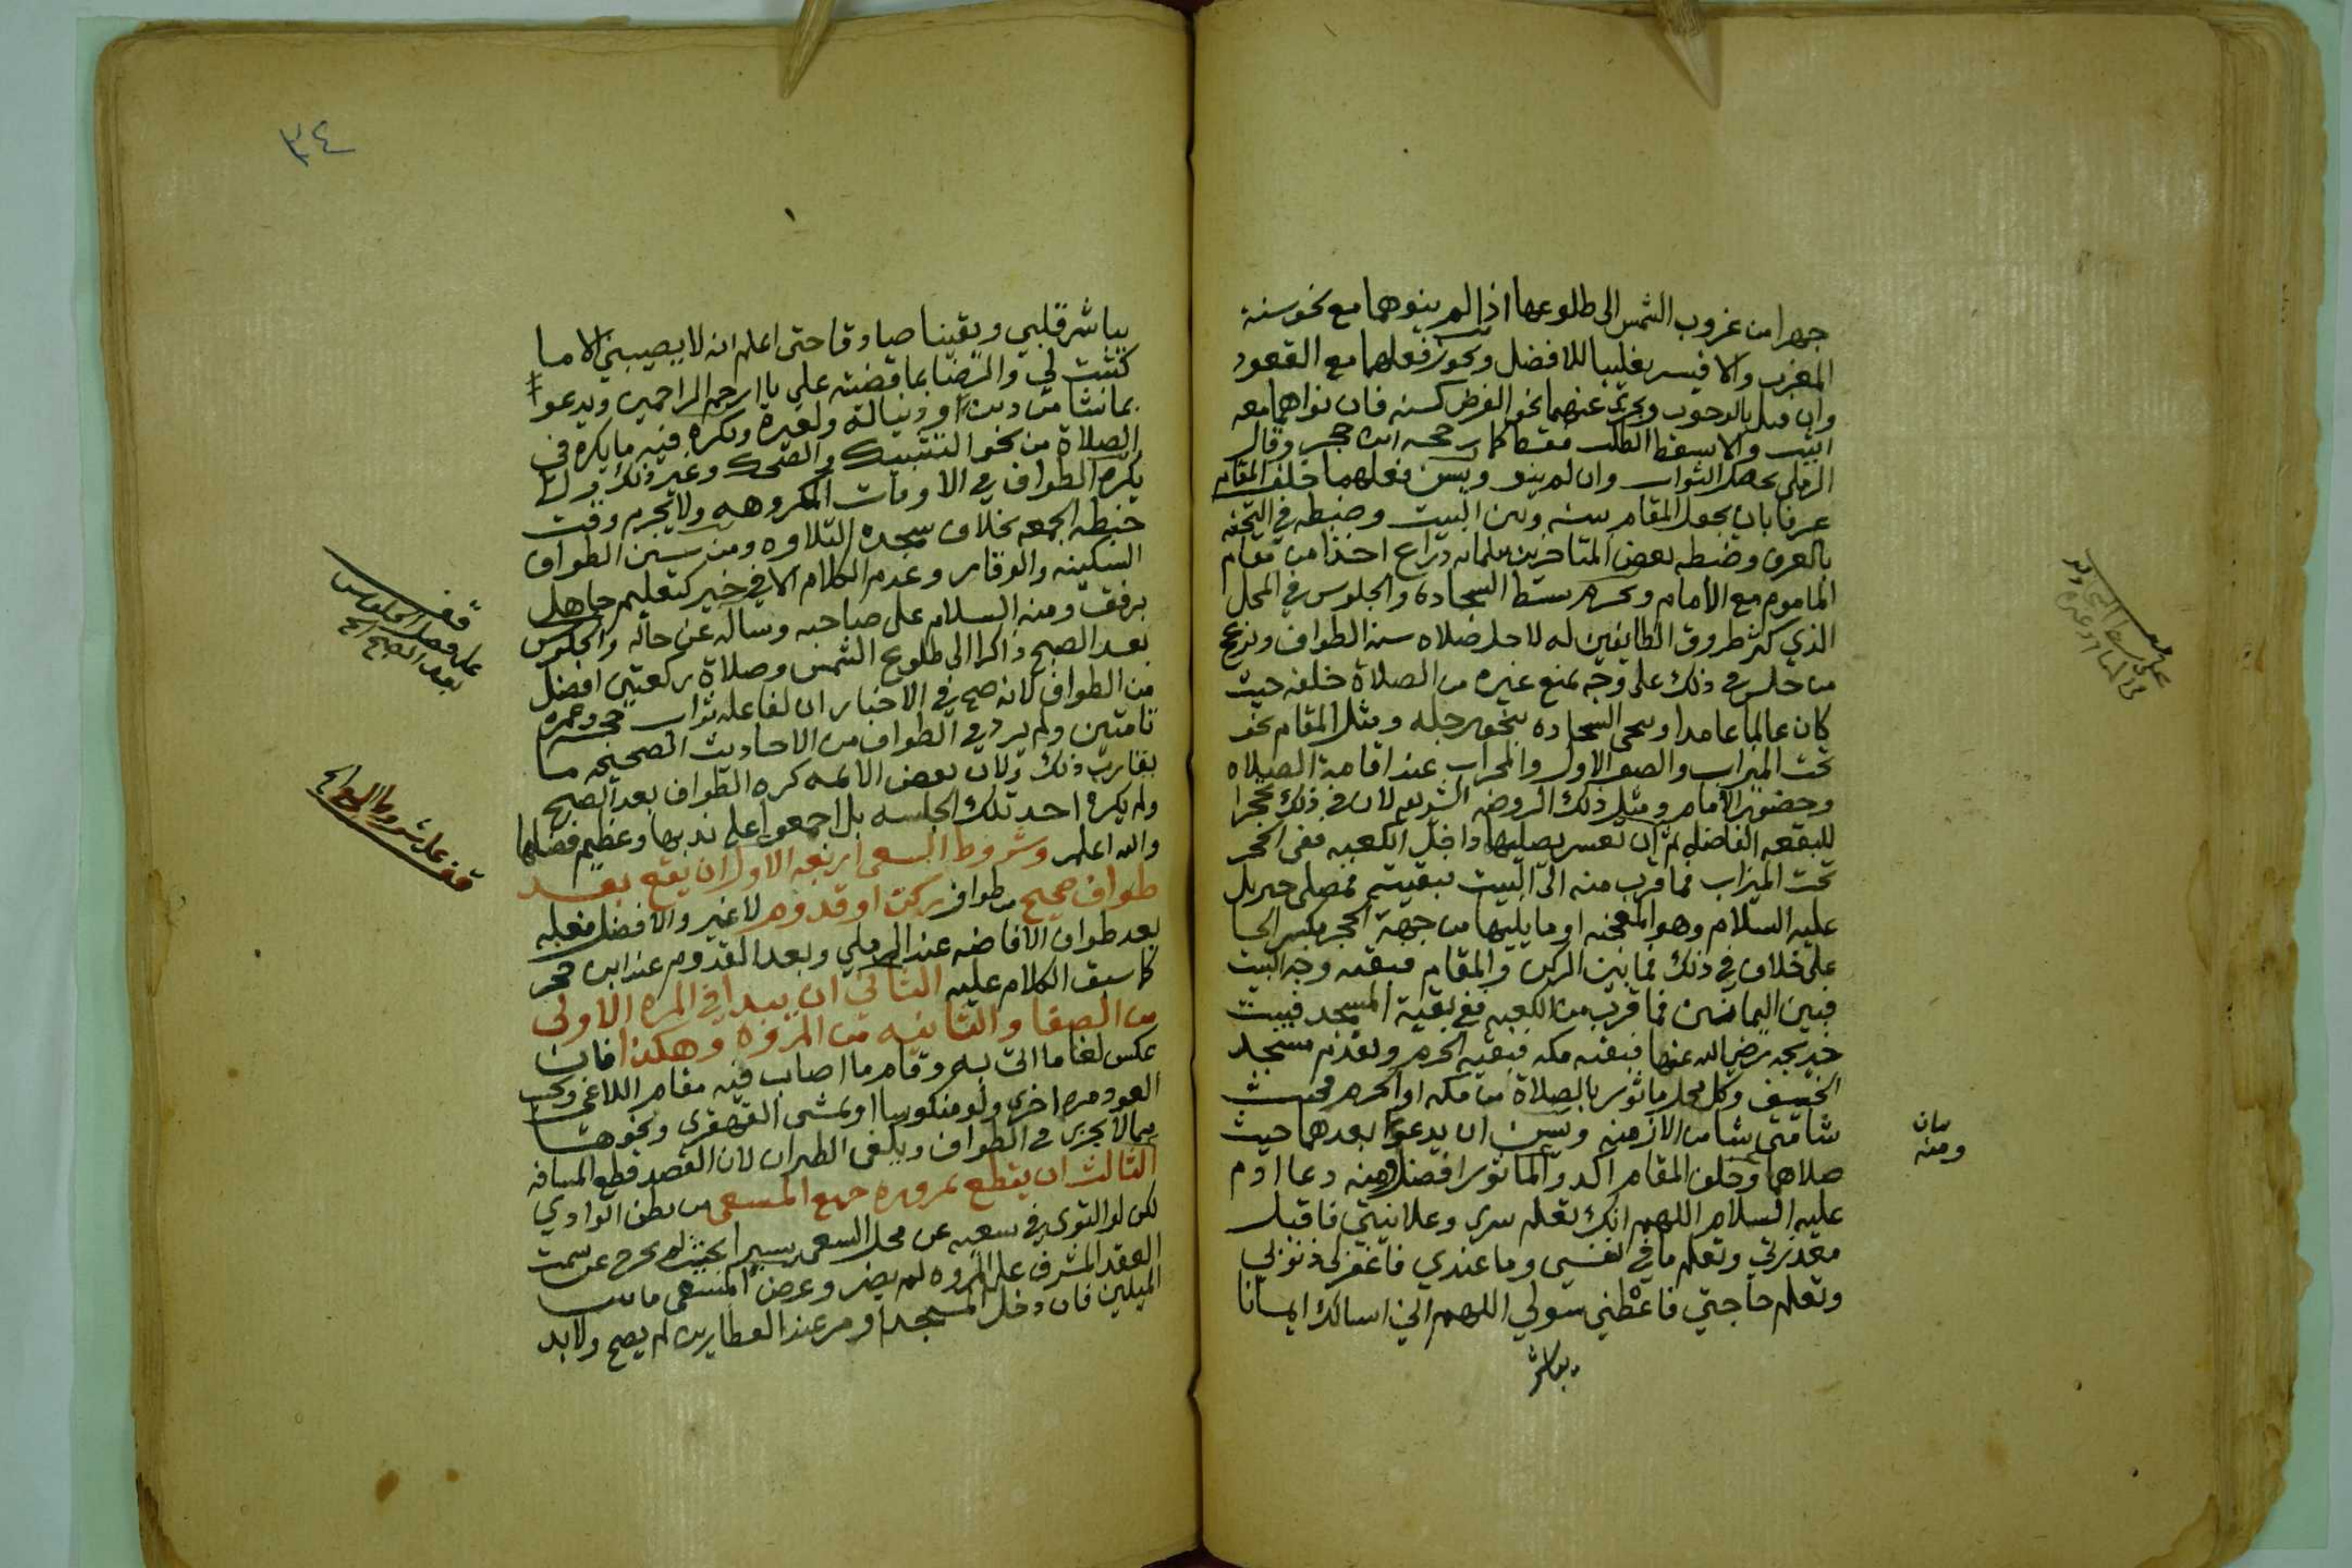 جهرا من غروب الشمس الى طلوعها اذا لم ينوهما مع نحو سنة
المغرب والا فيسر تغليبا للافضل ويجوز فعلهما مع القعود
وان قيل بالوجوب ويجزي عنهما نحو الفرض كسنه فان نواهما معه
اثيب والا سقط الطلب فقط كما رجحه ابن حجر وقال
الرملي يحصل الثواب وان لم ينو ويسن فعلهما خلف المقام
عرفا بان يجعل المقام بينه وبين البيت وضبطه في التحفه
بالعرف وضبطه بعض المتاخرين بثلثمائه ذراع اخذا من مقام
الماموم مع الامام ويحرم بسط السجاده والجلوس في المحل
الذي كثر طروق الطايفين له لاجل صلاه سنة الطواف ويزعج
من جلس في ذلك على وجه يمنع غيره من الصلاة خلفه حيث
كان عالما عامدا وينحي السجاده بنحو رجله ومثل المقام نحو
تحت الميزاب والصف الاول والمحراب عند اقامة الصلاه
وحضور الامام ومثل ذلك الروضه الشريفه لان في ذلك تحجرا
للبقعه الفاضله ثم ان تعسر يصليها داخل الكعبه ففي الحجر
تحت الميزاب فما قرب منه الى البيت فبقيته فمصلى جبريل
عليه السلام وهو المعجنه او ما يليها من جهة الحجر بكسر الحا
على خلاف في ذلك فما بين الركن والمقام فبقيه وجه البيت
فبين اليمانيين فما قرب من الكعبه ففي بقية المسجد فبيت
خديجه رضي الله عنها فبقيه مكه فبقيه الحرم ويقدم مسجد
الخيف وكل محل ماثور بالصلاة من مكه او الحرم فحيث
شا متى شا من الازمنه ويسن ان يدعوا بعدهما حيث
صلاهما وخلف المقام اكد والماثور افضل ومنه دعا ادم
عليه السلام اللهم انك تعلم سري وعلانيتي فاقبل
معذرتي وتعلم ما في نفسي وما عندي فاغفر لي ذنوبي
وتعلم حاجتي فاعطني سولي اللهم اني اسالك ايمانا
يباشر
بيان
ومنه
٣٤
يباشر قلبي ويقينا صادقا حتى اعلم انه لا يصيبني الا ما
كتبت لي والرضا بما قضيته علي يا ارحم الراحمين ويدعوا
بما شا من دين او دنيا له ولغيره ويكره فيه ما يكره في
الصلاة من نحو التشبيك والضحك وغير ذلك ولا
يكره الطواف في الاوقات المكروهه ولا يحرم وقت
خطبه الجمعه بخلاف سجده التلاوه ومن سنن الطواف
السكينه والوقار وعدم الكلام الا في خير كتعليم جاهل
برفق ومنه السلام على صاحبه وساله عن حاله والجلوس
بعد الصبح ذاكرا الى طلوع الشمس وصلاة ركعتين افضل
من الطواف لانه صح في الاخبار ان لفاعله ثواب حجه وعمره
تامتين ولم يرد في الطواف من الاحاديث الصحيحه ما
يقارب ذلك ولان بعض الائمه كره الطواف بعد الصبح
ولم يكره احد تلك الجلسه بل اجمعوا على ندبها وعظيم فضلها
والله اعلم وشروط السعي اربعه الاول ان يقع بعد
طواف صحيح من طواف ركن او قدوم لا غير والافضل فعله
بعد طواف الافاضه عند الرملي وبعد القدوم عند ابن حجر
كما سبق الكلام عليه الثاني ان يبدا في المره الاولى
من الصفا والثانيه من المروه وهكذا فان
عكس لغا ما اتى به وقام ما اصاب فيه مقام اللاغي ويجب
العود مره اخرى ولو منكوسا او يمشى القهقرى ونحوهما
مما لا يجزي في الطواف ويكفي الطيران لان القصد قطع المسافه
الثالث ان يقطع بمروره جميع المسعى من بطن الوادي
لكن لو التوى في سعيه عن محل السعي يسيرا بحيث لم يخرج عن سمت
العقد المشرف على المروه لم يضر وعرض المسعى ما بين
الميلين فان دخل المسجد او مر عند العطارين لم يصح ولا بد
قف
على فضل الجلوس
بعد الصبح الخ
قف على شروط السعي الخ